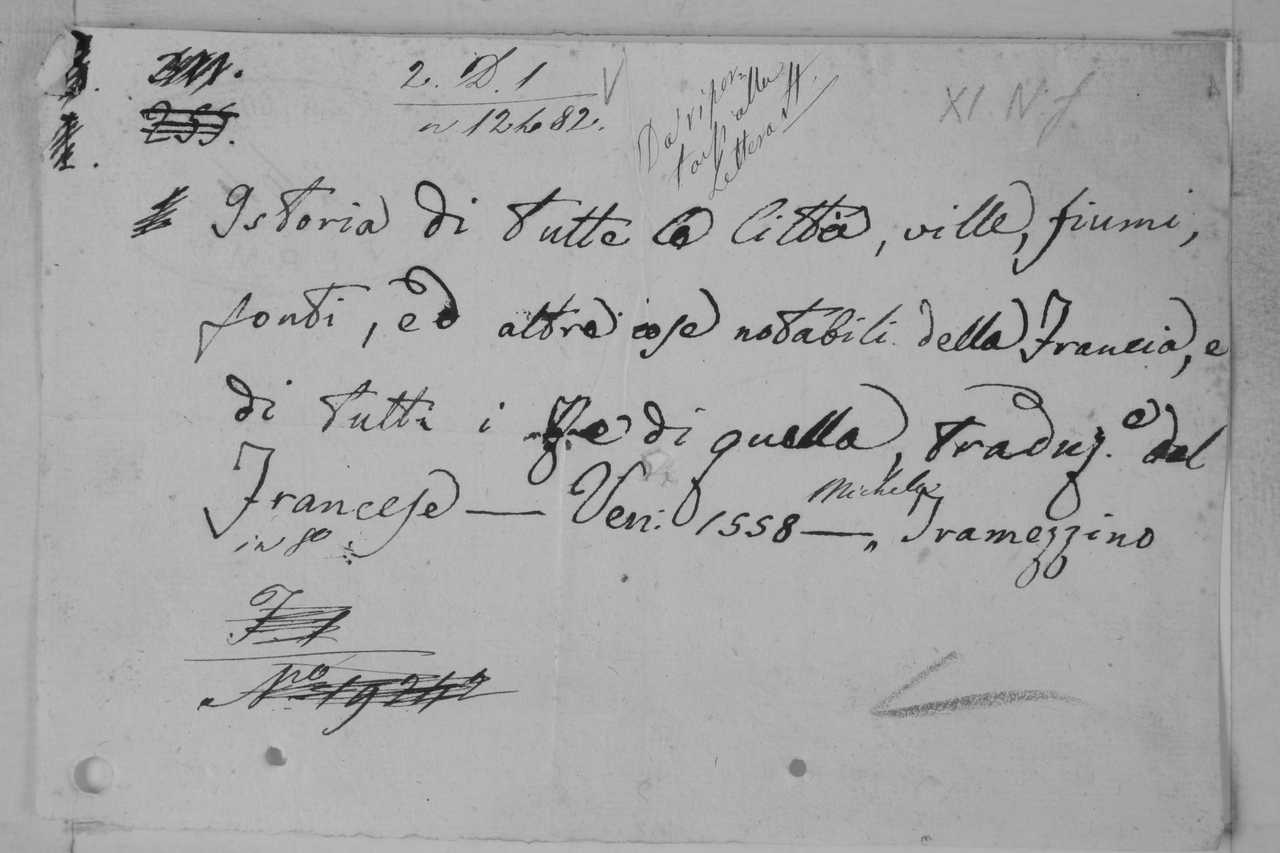 2. D. 1
n 12 to 82.
Da ripor=
tarsi alla
Lettera
XI. N. f
255.
Istoria di tutte le Città, ville, fiumi,
fonti, ed altre cose notabili della Francia, e
di tutti i Re di quella, traduz.e dal
Francese — Ven: 1558 — Michele Tramezzino
in 8o
F. 1
Nro 19242